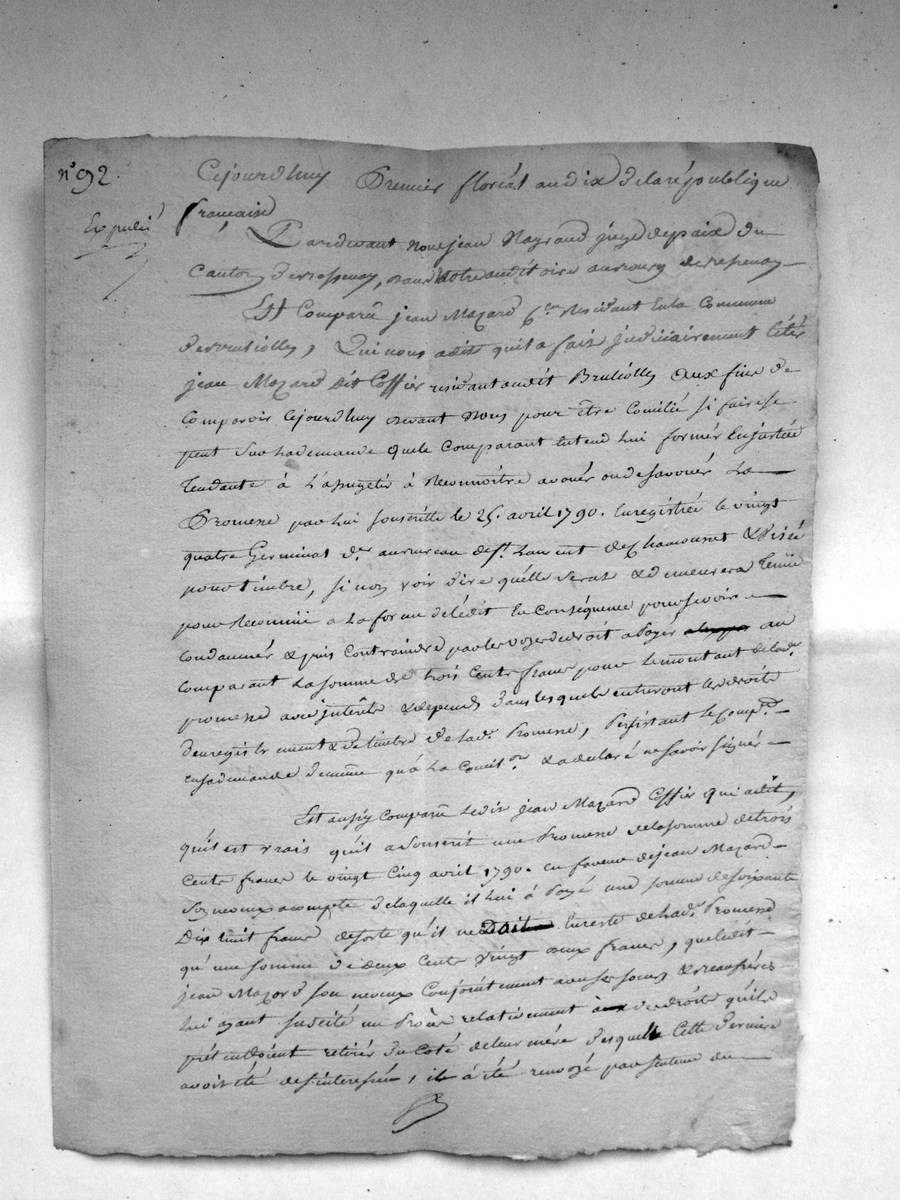 n° 92.
Cejourdhuy Premier floréal an dix de la république
française
Expedié
Pardevant Nous jean Nayraud juge de paix du
canton de Bessenay, dans notre auditoire au bourg de Bessenay
Est Comparu jean Mazard C.en Residant en la Commune
de Brulliolles, Qui nous a dit qu'il a fait judiciairement citer
jean Mazard dit Coffier residant audit Brulliolles aux fins de
Comparoir cejourdhuy devant Nous pour être Concilié si faire se
peut Sur la demande que le Comparant entend lui former en justice
Tendante à L'assujetir à Reconnoitre avouér ou desavouér La
Promesse par lui souscritte le 25. avril 1790. Enregistrée le vingt
quatre Germinal d.er au bureau de S.t Laurent de Chamousset & visée
pour timbre, si non voir dire qu'elle sera & demeurera tenüe
pour Reconnüe a La forme de l'édit en conséquence pour se voir
Condamnér & puis Contraindre par les voyes de droit a Payér au
Comparant La somme de trois Cents francs pour le montant de lad.e
promesse avec intérêts & depends dans lesquels entreront les droits
d'enregistrement & de timbre de lad.e Promesse, Persistant le Comp.t
en sa demande de même qu'à La Concil.on & a declaré ne savoir signér
Est aussy Comparu Ledit jean Mazard Coffier qui a dit,
qu'il est vrais qu'il a Souscrit une Promesse de la somme de trois
Cents francs le vingt Cinq avril 1790. en faveur de jean Mazard
Son neveux a compte de laquelle il lui à Payé une somme de soixante
Dix huit francs de sorte qu'il ne Doit En reste de lad.e Promesse
qu'une somme de deux Cents vingt deux francs, que ledit
jean Mazard son neveux Conjointement avec ses soeurs & beaufréres
lui ayant suscité un Procès relativement à des droits qu'ils
prétendoient retirér du coté de leur mére desquels Cette derniere
avoit été desinteressée, il à été renvoyé par sentence du